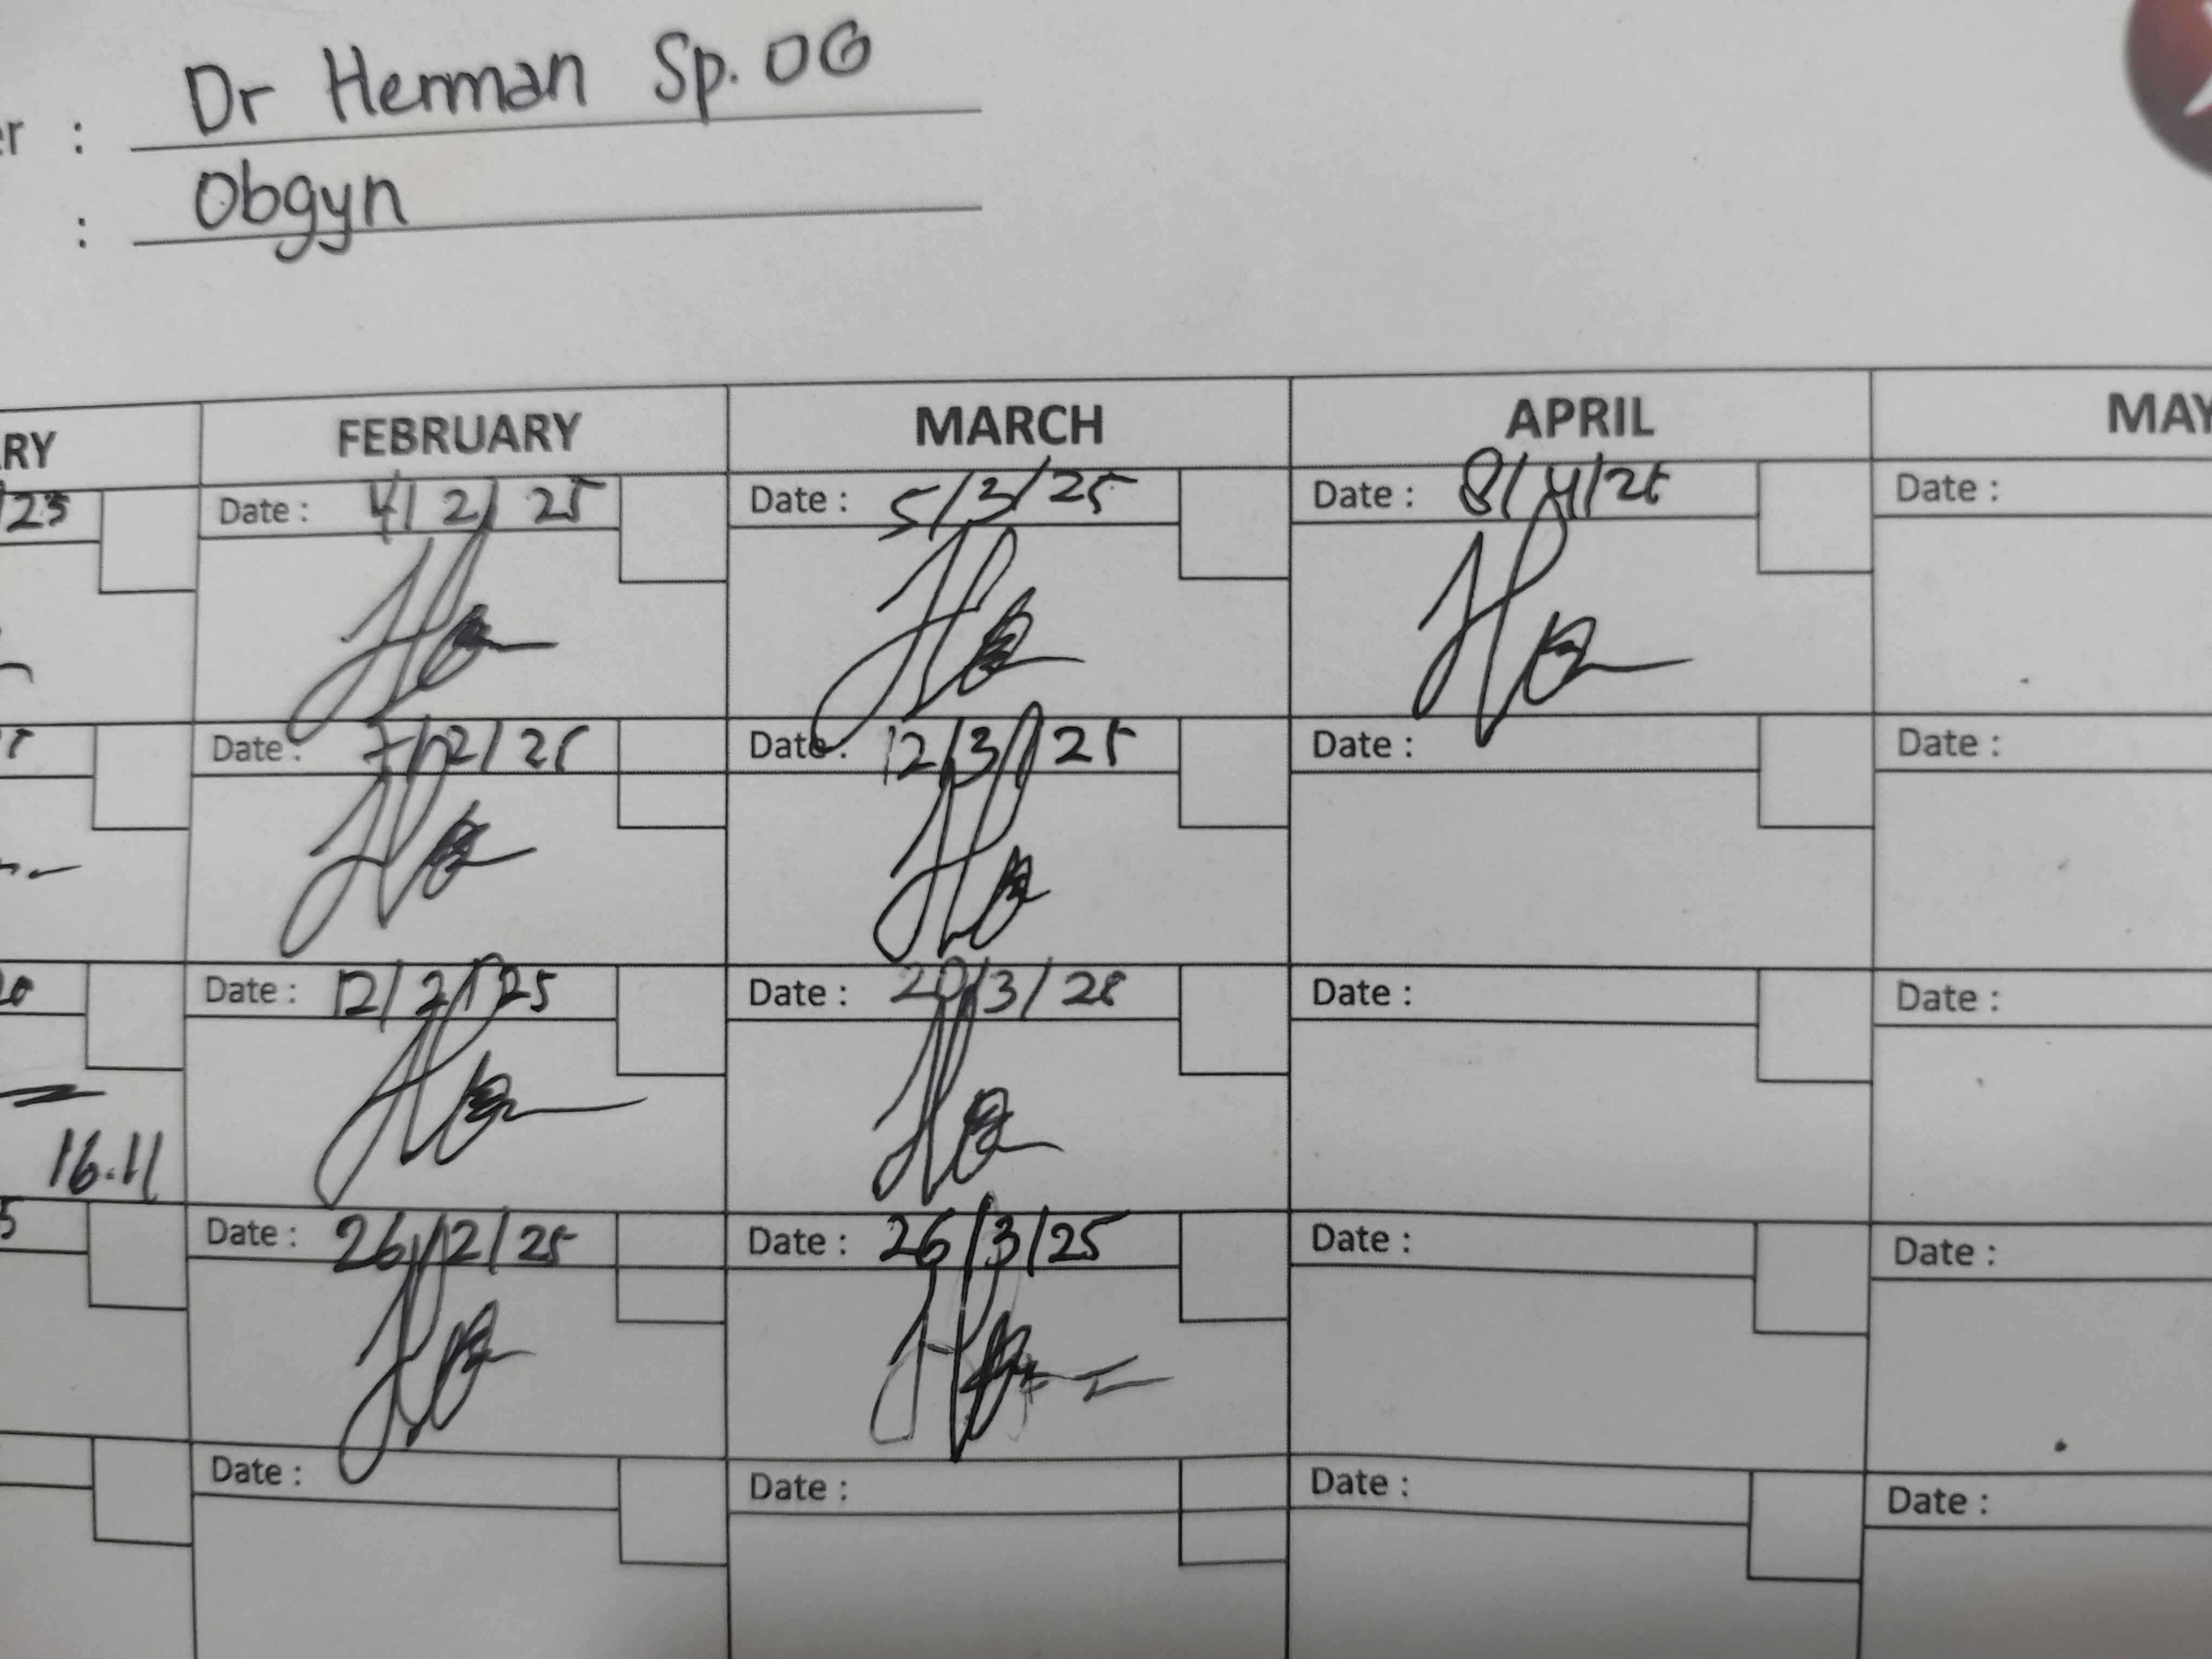 er : Dr Herman Sp.OG
: Obgyn
RY FEBRUARY MARCH APRIL MAY
/25 Date : 4/2/25 Date : 5/3/25 Date : 8/4/25 Date :
Date : 7/2/25 Date : 12/3/25 Date : Date :
20 Date : 12/2/25 Date : 20/3/25 Date : Date :
16.11
5 Date : 26/2/25 Date : 26/3/25 Date : Date :
Date : Date : Date : Date :